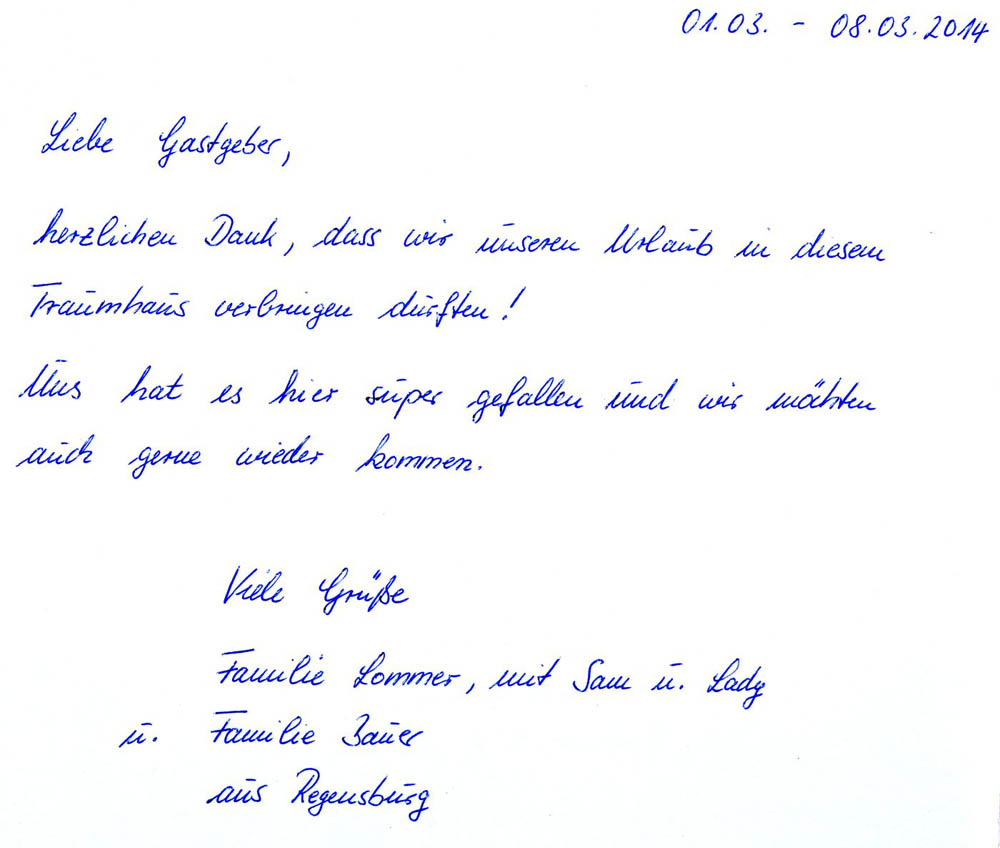 01.03. - 08.03.2014
Liebe Gastgeber,
herzlichen Dank, dass wir unseren Urlaub in diesem
Traumhaus verbringen durften!
Uns hat es hier super gefallen und wir möchten
auch gerne wieder kommen.
Viele Grüße
Familie Lommer, mit Sam u. Lady
u. Familie Bauer
aus Regensburg